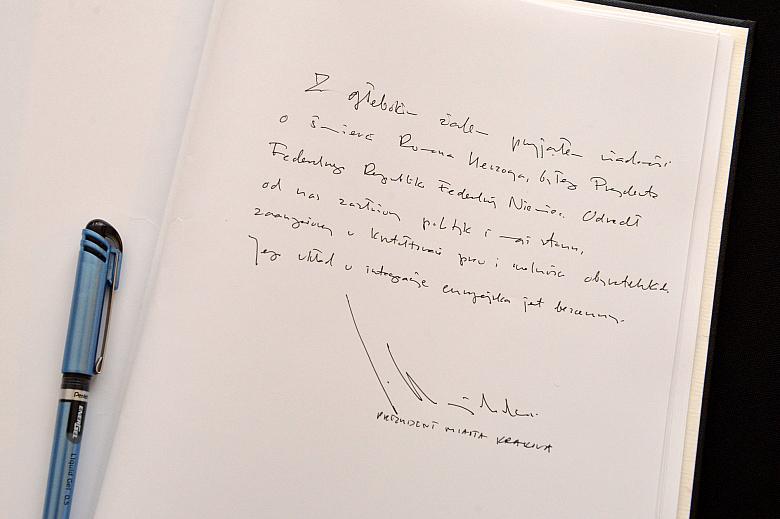 Z głębokim żalem przyjąłem wiadomość
o śmierci Romana Herzoga, byłego Prezydenta
Federalnej Republiki Federalnej Niemiec. Odszedł
od nas zasłużony polityk i mąż stanu,
zaangażowany w kształtowanie praw i wolności obywatelskich.
Jego wkład w integrację europejską jest bezcenny.
PREZYDENT MIASTA KRAKOWA
Pentel
ENERGEL
Liquid Gel 0.5